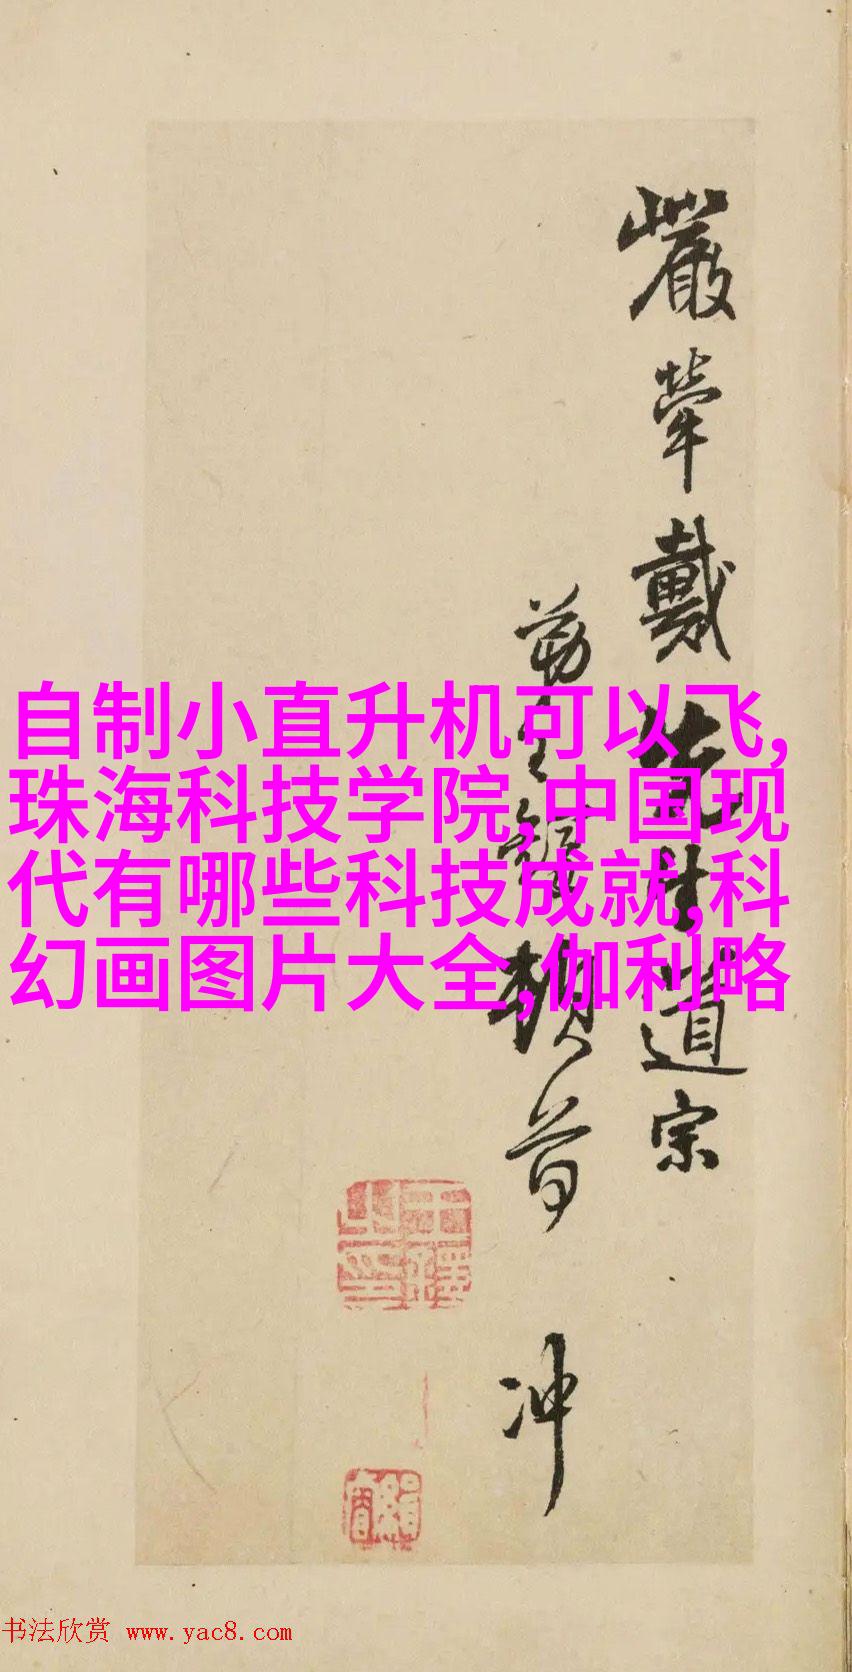 嚴犖戴先生道宗
頓首 冲
自制小直升机可以飞,
珠海科技学院,中国现
代有哪些科技成就,科
幻画图片大全,伽利略
书法欣赏 www.yac8.com